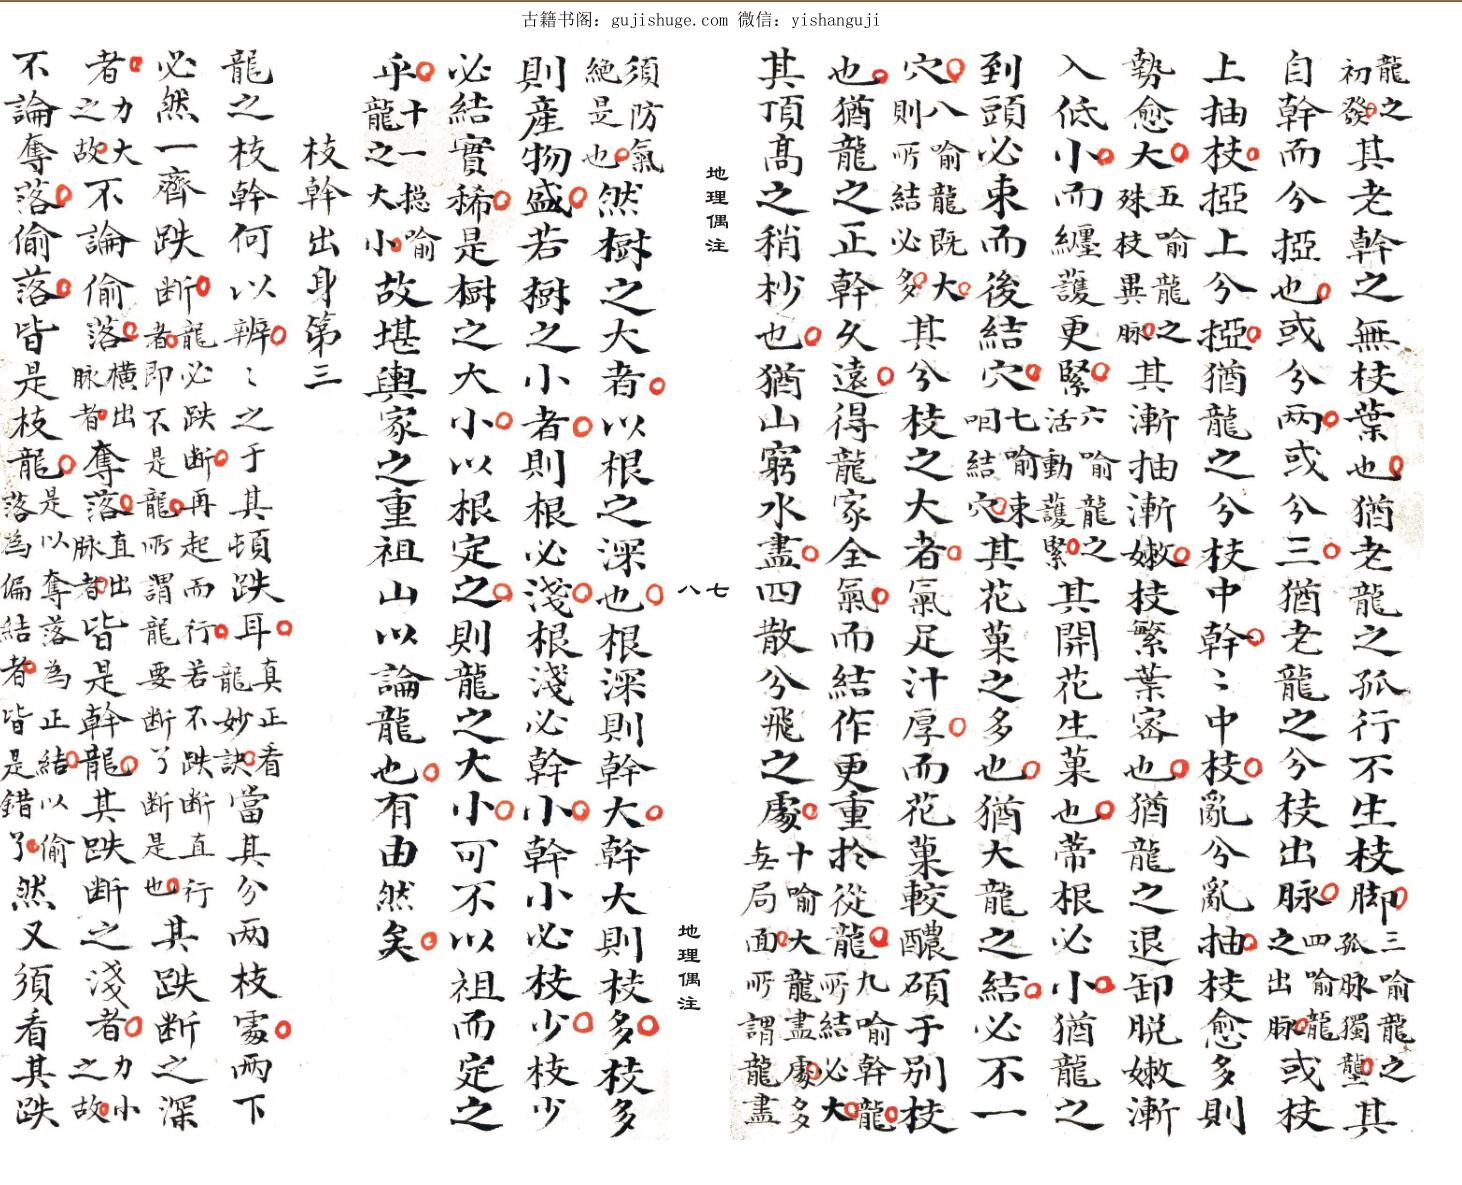 古籍书阁：gujishuge.com 微信：yishanguji
龍之初發其老幹之無枝葉也猶老龍之孤行不生枝脚三喻龍之孤脉獨壟其
自幹而兮掗也或兮兩或兮三猶老龍之兮枝出脉四喻龍之出脉或枝
上抽枝掗上兮掗猶龍之兮枝中幹〻中枝亂兮亂抽枝愈多則
勢愈大五喻龍之殊枝異脉其漸抽漸嫩枝繁葉密也猶龍之退卸脱嫩漸
入低小而纏護更緊六喻龍之活動護緊其開花生菓也蒂根必小猶龍之
到頭必束而後結穴七喻束咽結穴其花菓之多也猶大龍之結必不一
穴八喻龍既大則所結必多其兮枝之大者氣足汁厚而花菓較醲碩于别枝
也猶龍之正幹乆遠得龍家全氣而結作更重於從龍九喻幹龍所結必大
其頂髙之稍杪也猶山窮水盡四散兮飛之處十喻大龍盡處多無局面所謂龍盡
地理偶注
七
八
地理偶注
須防氣絶是也然樹之大者以根之深也根深則幹大幹大則枝多枝多
則産物盛若樹之小者則根必淺根淺必幹小幹小必枝少枝少
必結實稀是樹之大小以根定之則龍之大小可不以祖而定之
乎十一總喻龍之大小故堪輿家之重祖山以論龍也有由然矣
枝幹出身第三
龍之枝幹何以辨〻之于其頓跌耳真正看龍妙訣當其分兩枝處兩下
必然一齊跌断龍必跌断再起而行若不跌断直行者即不是龍所謂龍要断了断是也其跌断之深
者力大之故不論偷落横出脉者奪落直出脉者皆是幹龍其跌断之淺者力小之故
不論奪落偷落皆是枝龍是以奪落為正結以偷落為偏結者皆是錯了然又須看其跌